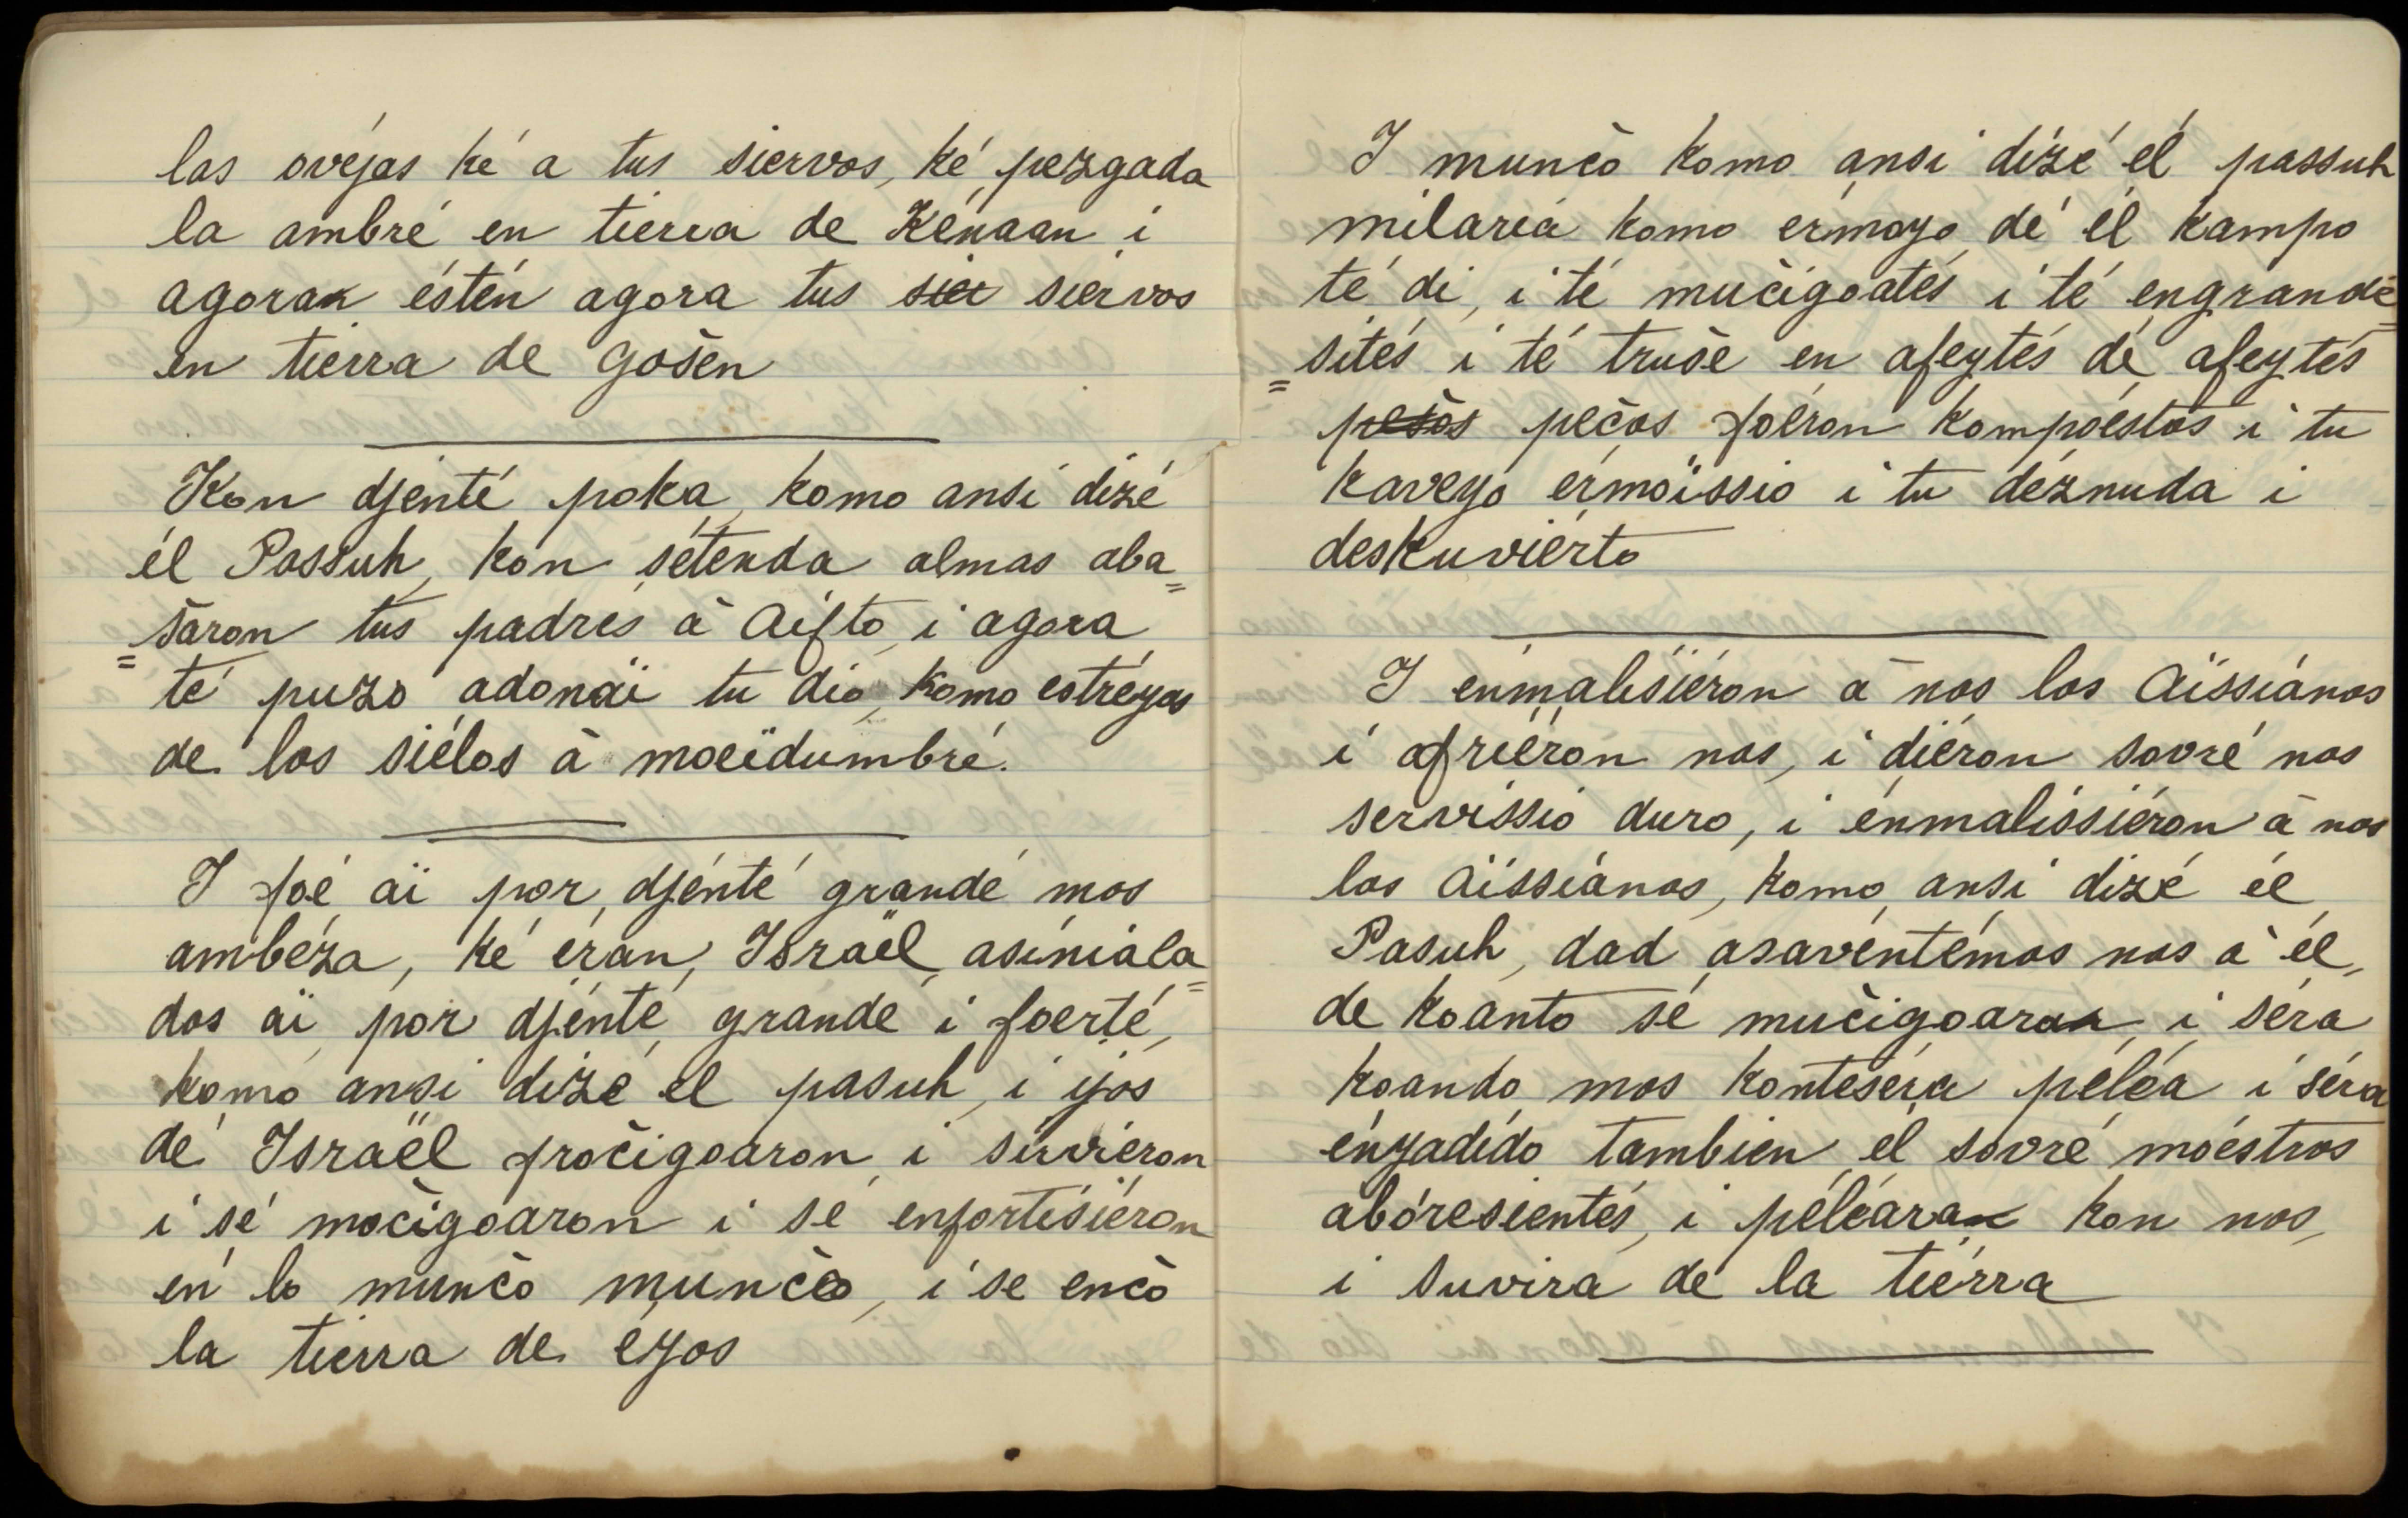 las ovéjas ké a tus siervos, ké pezgada
la ambré en tierra de Kénaan i
agora ésten agora tus sier siérvos
en tierra de Gošen
Kon djenté poka, komo ansi dizé
él Passuh, kon sétenda almas aba=
=šaron tus padrés à Aifto, i agora
té puzo adonaï tu dio, komo estréyas
de los siélos à moeïdumbré.
I foé aï por djénté grandé mos
ambéza, ké éran Israël asiniála=
dos aï por djénté grandé i foerté,
komo ansi dizé el pasuh, i ijos
dé Israël fročigoaron i suviéron
i sé močigoaron i sé enfortésiéron
en lo munčo munčo, i se enčo
la tierra de eyos
I munčo komo ansi dizé él passuh
milaria komo ermoyo dé él kampo
té di, i té mučigoatés i té engrandé=
=sités i té truše en afeytés dé afeytés
pešos pečos foéron kompoéstos i tu
kaveyo érmoïssio i tu déznuda i
deskuviérto
I énmalisiéron à nos los Aïssiános
i afriéron nos, i diéron sovré nos
servissio duro, i énmalissiéron à nos
los Aïssiános, komo ansi dizé él
Pasuh, dad asavéntémos nos à él,
de koanto sé mučigoara, i séra
koando mos konteséra péléa i séra
ényadido tambien él sovré moéstros
abóresientés, i péléara kon nos,
i suvira dé la tiérra